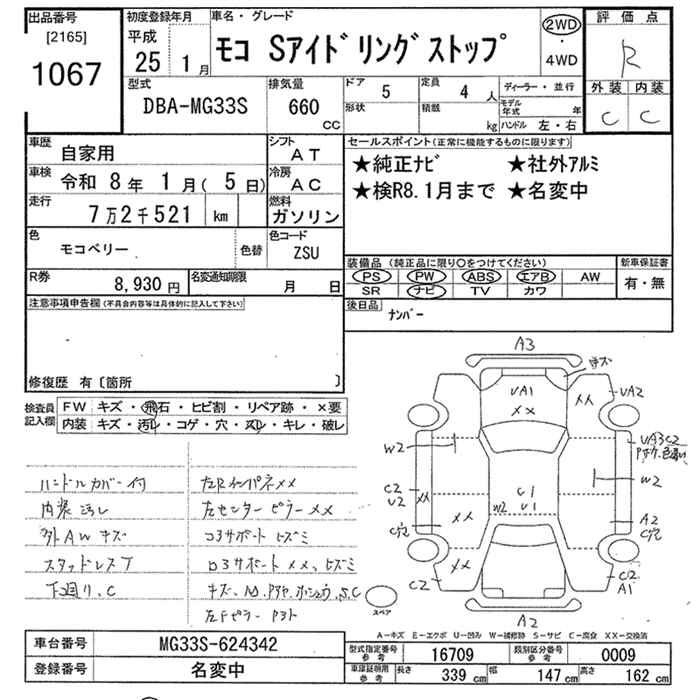 出品番号
[2165]
1067
初度登録年月
平成
25 1月
車名・グレード
モコ Sアイドリングストップ
2WD
・
4WD
評価点
R
外装 内装
C C
型式
DBA-MG33S
排気量
660
CC
ドア 5
形状
定員 4 人
積載 kg
ディーラー・並行
モデル年式 年
ハンドル 左・右
車歴 自家用
車検 令和 8年 1月( 5日)
走行 7万2千521 km
色 モコベリー 色替
R券 8,930円
名変通知期限 月 日
シフト AT
冷房 AC
燃料 ガソリン
色コード ZSU
セールスポイント(正常に機能するものに限ります)
★純正ナビ ★社外アルミ
★検R8.1月まで ★名変中
装備品 (純正品に限り○をつけてください)
PS PW ABS エアB AW
SR ナビ TV カワ
新車保証書
有・無
後日品
ナンバー
注意事項申告欄(不具合内容等は具体的に記入して下さい)
修復歴 有〔箇所 〕
検査員記入欄
FW キズ・飛石・ヒビ割・リペア跡・×要
内装 キズ・汚レ・コゲ・穴・スレ・キレ・破レ
ハンドルカバー付
内装汚レ
外AWキズ
スタッドレスT
下回り、C
左Rインパネ××
左センターピラー××
コアサポート ヒズミ
ロアサポート××、ヒズミ
A3
キズ
UA1
××
××
UA2
W2
UA3C2
W2
C2
U2
××
C1
U1
W2
××
A2
××
C2
C2
A1
A2
スペア
A-キズ E-エクボ U-凹み W-補修跡 S-サビ C-腐食 XX-交換済
車台番号 MG33S-624342
登録番号 名変中
型式指定番号参考 16709
類別区分番号参考 0009
車庫証明用参考 長さ 339 cm 幅 147 cm 高さ 162 cm